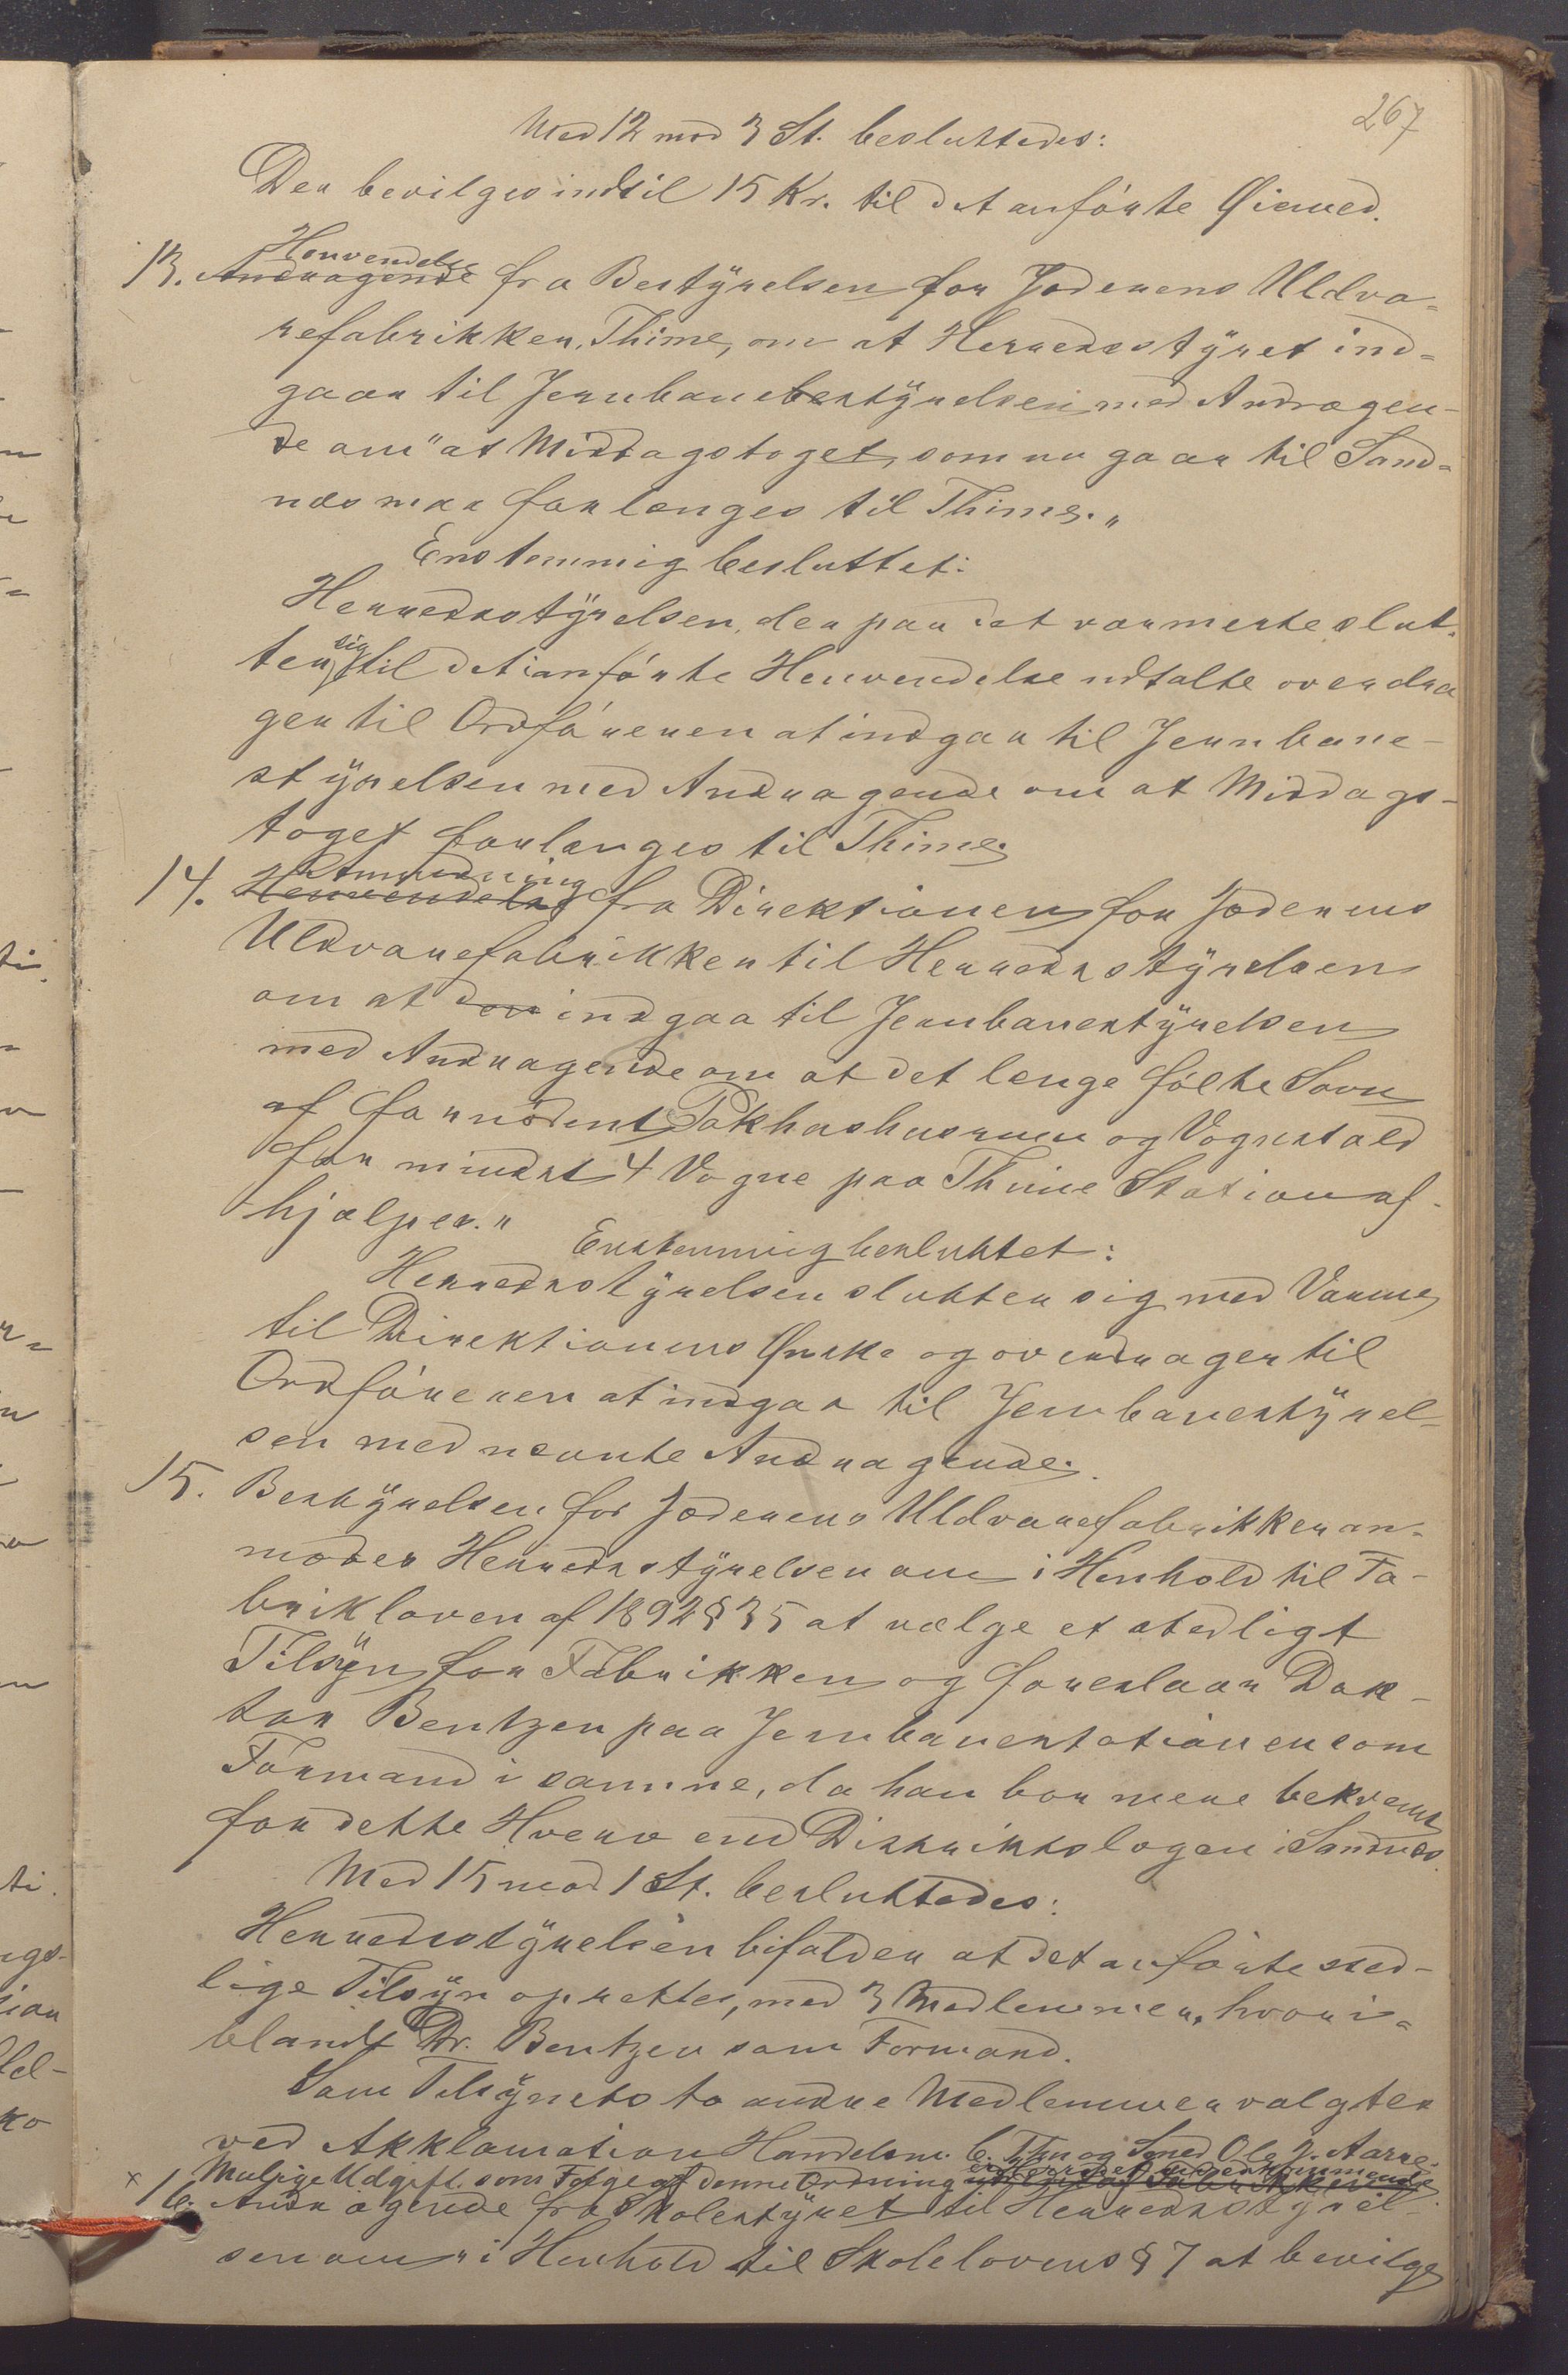 267
Med 12 mod 3 St. besluttedes:
Der bevilges indtil 15 Kr. til det anførte Øiemed.
13. Andragende Henvendelse fra Bestÿrelsen for Jæderens Uldva-
refabrikker, Thime, om at Herredsstÿret ind-
gaar til Jernbanebestÿrelsen med Andragen-
de om "at Middagstoget, som nu gaar til Sand-
næs maa forlænges til Thime."
Enstemmig besluttet:
Herredsstÿrelsen, der paa det varmeste slut-
ter sig til det i anførte Henvendelse udtalte overdra
ger til Ordføreren at indgaa til Jernbane-
stÿrelsen med Andragende om at Middags-
toget forlænges til Thime.
14. Henvendelse Anmodning fra Direktionen for Jæderens
Uldvarefabrikker til Herredsstÿrelsen
om at den indgaa til Jernbanestÿrelsen
med Andragende om at det længe følte Savn
af fornødent Pakhushusrum og Vognstald
for mindst 4 Vogne paa Thime Station af-
hjælpes."
Enstemmig besluttet:
Herredsstÿrelsen slutter sig med Varme
til Direktionens Ønske og overdrager til
Ordføreren at indgaa til Jernbanestÿrel-
sen med nævnte Andragende.
15. Bestÿrelsen for Jæderens Uldvarefabrikker an-
moder Herredsstÿrelsen om i Henhold til Fa-
brikloven af 1892 § 35 at vælge et stedligt
Tilsÿn for Fabrikken og foreslaar Dok-
tor Bentzen paa Jernbanestationen som
Formand i samme, da han bor mere bekvemt
for dette Hverv end Distriktslægen i Sandnæs.
Med 15 mod 1 St. besluttedes:
Herredsstÿrelsen bifalder at det anførte sted-
lige Tilsÿn oprettes, med 3 Medlemmer, hvori-
blandt Dr. Bentzen som Formand.
Som Tilsÿnets to andre Medlemmer valgtes
ved Akklamation Handelsm. C. Thu og Smed Ole J. Aarre.
x Mulige Udgift. som Følge af denne Ordning
16. Andragende fra Skolestÿret til Herredsstÿrel-
sen om "i Henhold til Skolelovens § 7 at bevilge